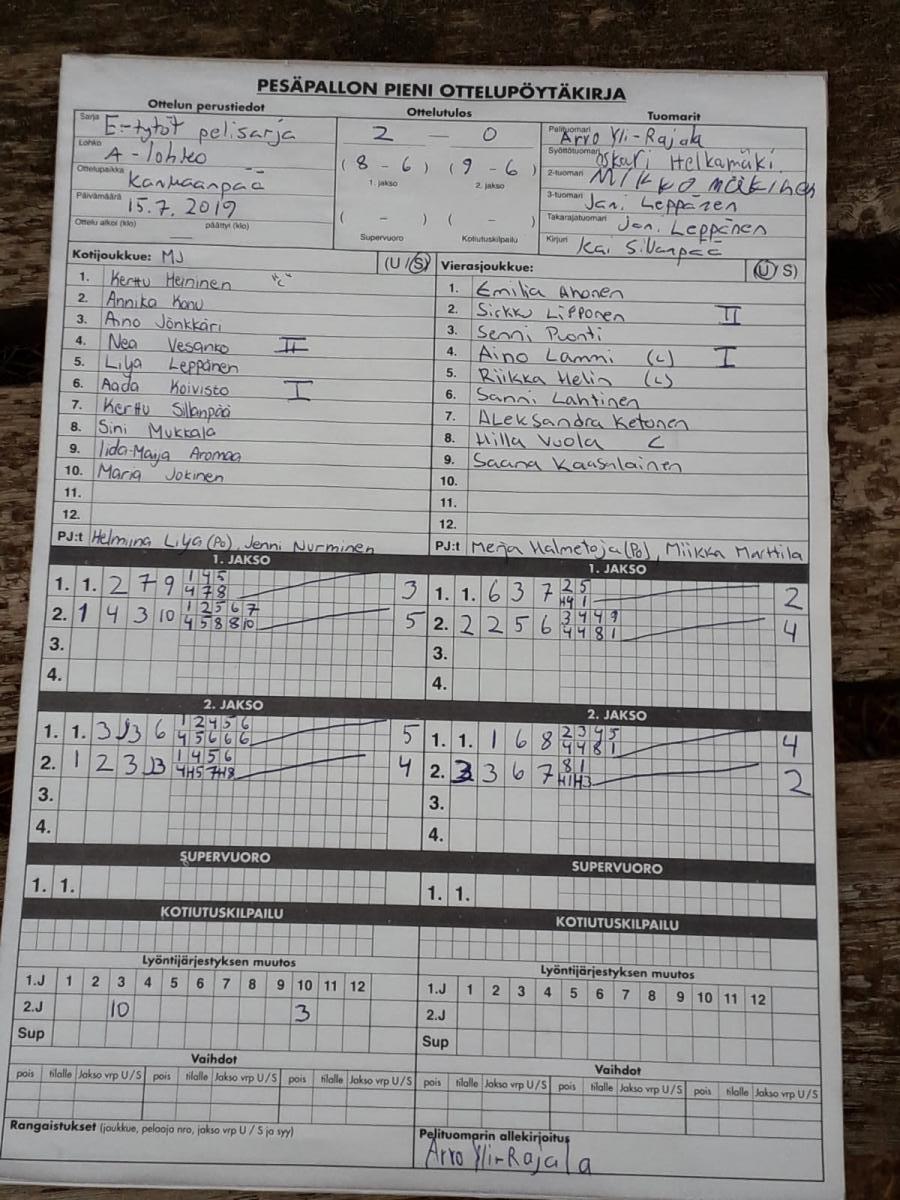 PESÄPALLON PIENI OTTELUPÖYTÄKIRJA
Ottelun perustiedot
Sarja E-tytöt pelisarja
Lohko A-lohko
Ottelupaikka Kankaanpää
Päivämäärä 15.7.2019
Ottelu alkoi (klo) päättyi (klo)
Ottelutulos
2 — 0
(8 - 6) (9 - 6)
1. jakso 2. jakso
( - ) ( - )
Supervuoro Kotiutuskilpailu
Tuomarit
Pelituomari Arvo Yli-Rajala
Syöttötuomari Oskari Helkamäki
2-tuomari Mikko Mäkinen
3-tuomari Jani Leppänen
Takarajatuomari Jani Leppänen
Kirjuri Kai Sillanpää
Kotijoukkue: MJ (U/S)
1. Kerttu Heininen
2. Annika Konu
3. Aino Jönkkäri
4. Nea Vesanko II
5. Lilja Leppänen
6. Aada Koivisto I
7. Kerttu Sillanpää
8. Sini Mukkala
9. Iida-Maija Aromaa
10. Maria Jokinen
11.
12.
PJ:t Helmiina Lilja (Po), Jenni Nurminen
Vierasjoukkue: (U/S)
1. Emilia Ahonen
2. Sirkku Lipponen II
3. Senni Puonti
4. Aino Lammi (L) I
5. Riikka Helin (L)
6. Sanni Lahtinen
7. Aleksandra Ketonen
8. Hilla Vuola C
9. Saana Kaasalainen
10.
11.
12.
PJ:t Merja Halmetoja (Po), Miikka Marttila
1. JAKSO
1. 1. 2 7 9 1 4 5 3
4 7 8
2. 1 4 3 10 1 2 5 6 7 5
4 5 8 8 10
3.
4.
1. JAKSO
1. 1. 6 3 7 2 5 2
H4 1
2. 2 2 5 6 3 4 4 9 4
4 4 8 1
3.
4.
2. JAKSO
1. 1. 3 J3 6 1 2 4 5 6 5
4 5 6 6 6
2. 1 2 3 J3 1 4 5 6 4
4 H5 7 H8
3.
4.
2. JAKSO
1. 1. 1 6 8 2 3 4 5 4
4 4 8 1
2. 3 6 7 8 1 2
H1 H3
3.
4.
SUPERVUORO
1. 1.
SUPERVUORO
1. 1.
KOTIUTUSKILPAILU
KOTIUTUSKILPAILU
Lyöntijärjestyksen muutos
1.J 1 2 3 4 5 6 7 8 9 10 11 12
2.J 10 3
Sup
Lyöntijärjestyksen muutos
1.J 1 2 3 4 5 6 7 8 9 10 11 12
2.J
Sup
Vaihdot
pois tilalle Jakso vrp U/S pois tilalle Jakso vrp U/S pois tilalle Jakso vrp U/S
Vaihdot
pois tilalle Jakso vrp U/S pois tilalle Jakso vrp U/S pois tilalle Jakso vrp U/S
Rangaistukset (joukkue, pelaaja nro, jakso vrp U/S ja syy)
Pelituomarin allekirjoitus
Arvo Yli-Rajala